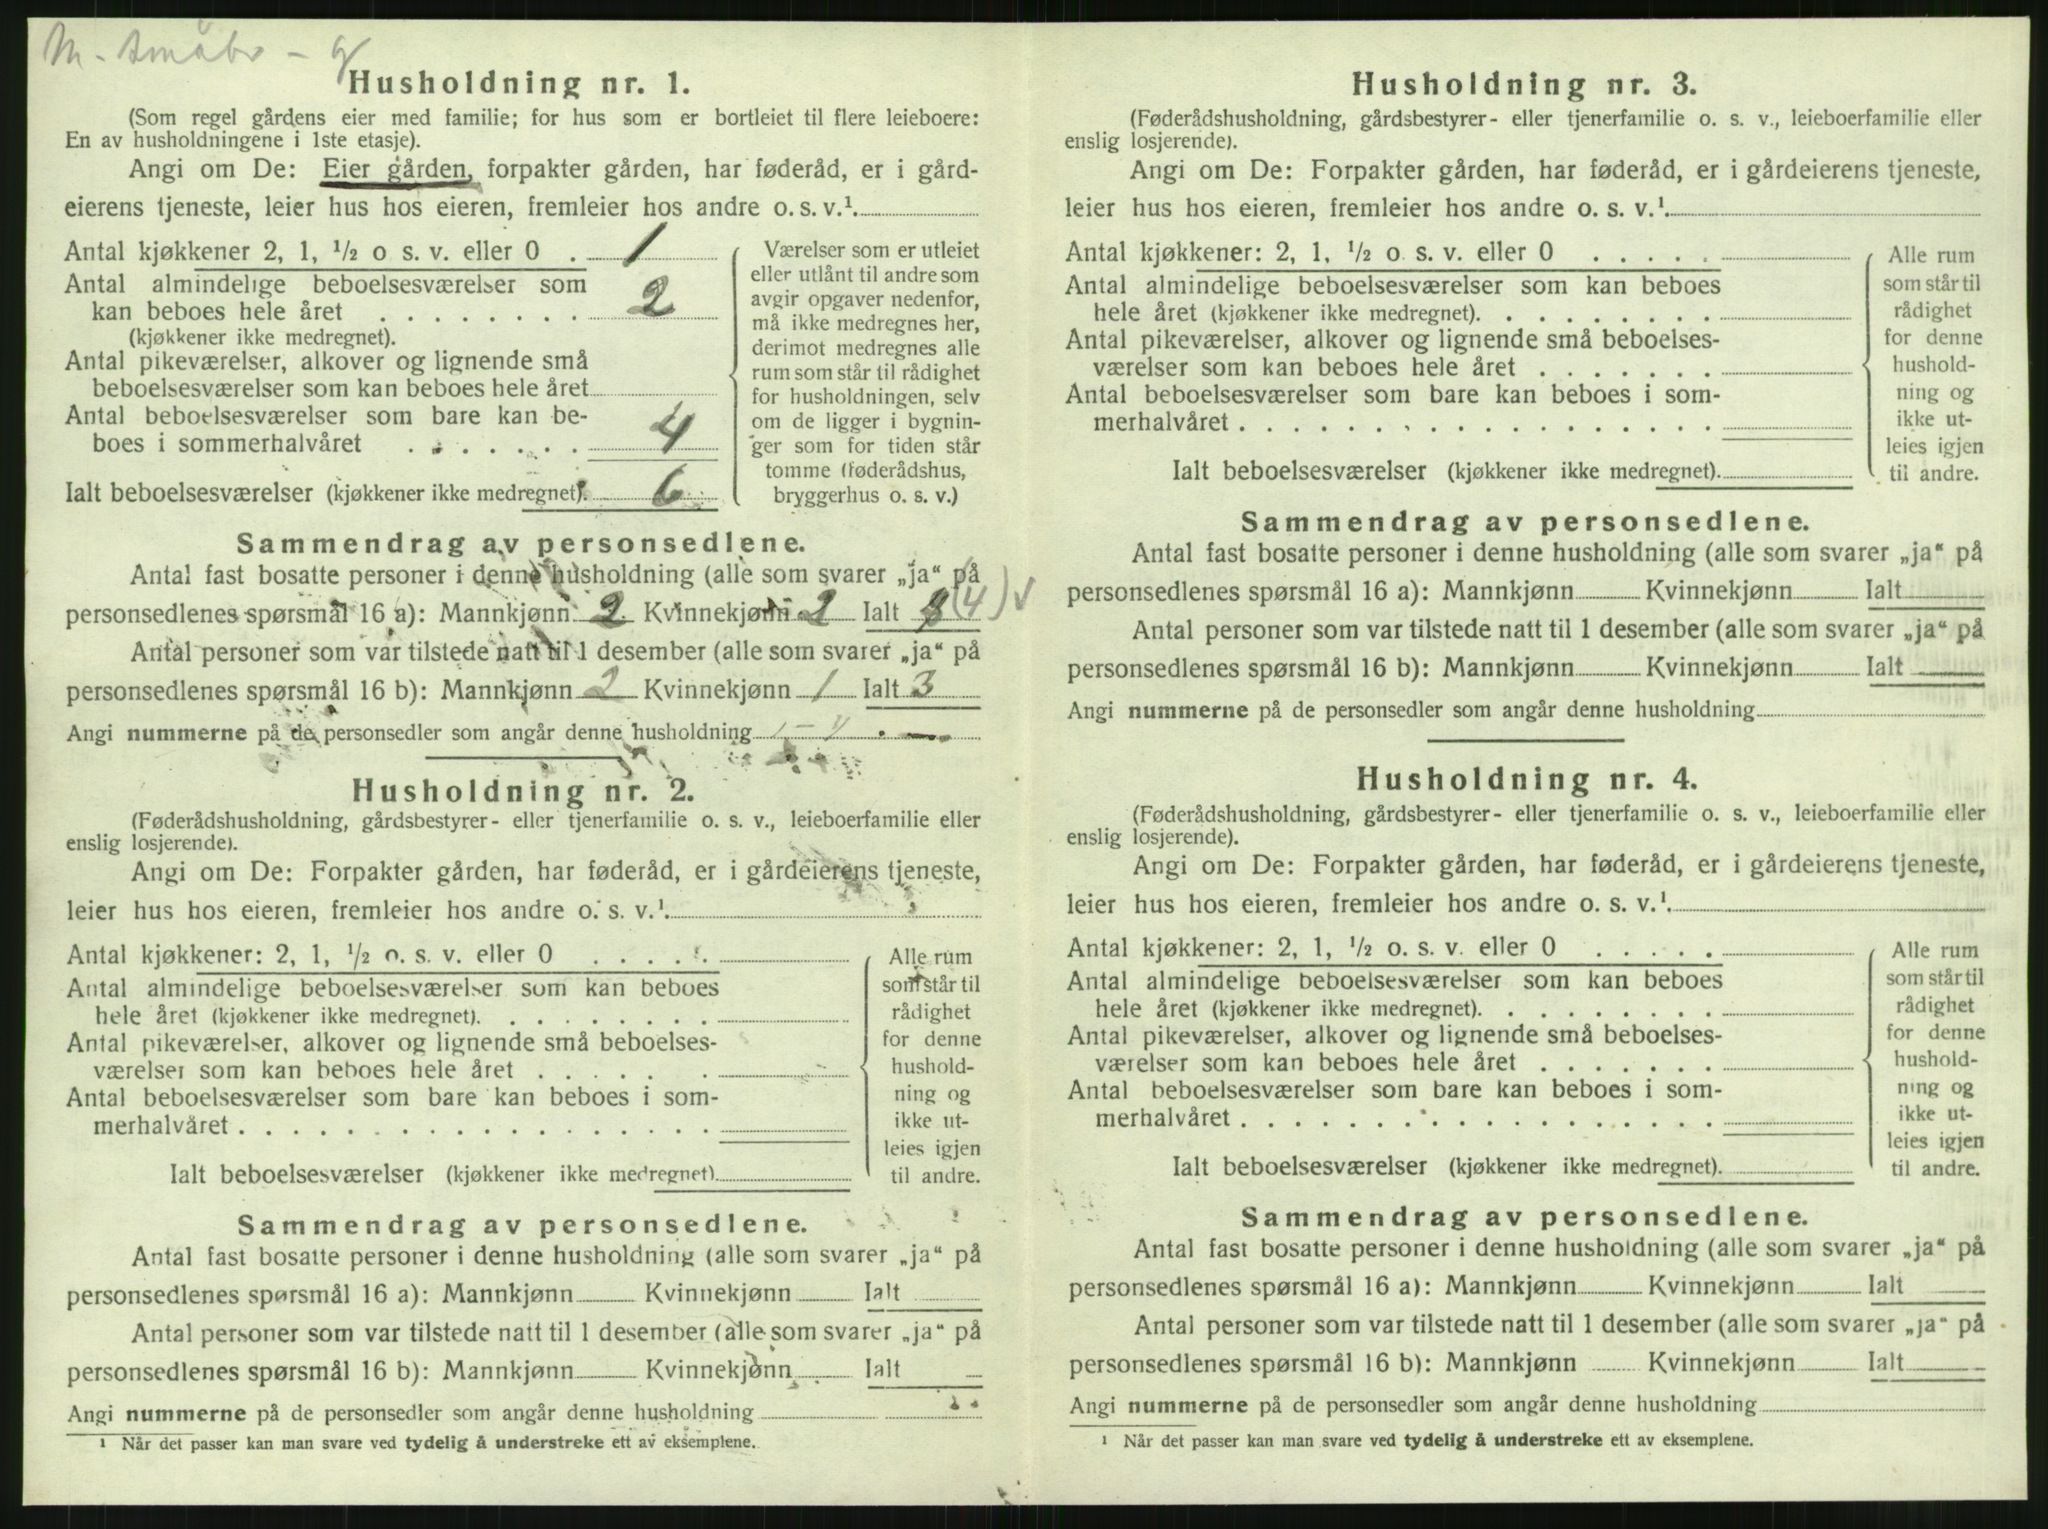 M. Småbr - g
Husholdning nr. 1.
(Som regel gårdens eier med familie; for hus som er bortleiet til flere leieboere:
En av husholdningene i 1ste etasje).
Angi om De: Eier gården, forpakter gården, har føderåd, er i gård-
eierens tjeneste, leier hus hos eieren, fremleier hos andre o. s. v.¹
Antal kjøkkener 2, 1, ½ o s. v. eller 0 . 1
Antal almindelige beboelsesværelser som
kan beboes hele året . . . . . . . . 2
(kjøkkener ikke medregnet).
Antal pikeværelser, alkover og lignende små
beboelsesværelser som kan beboes hele året
Antal beboelsesværelser som bare kan be-
boes i sommerhalvåret . . . . . . . 4
Ialt beboelsesværelser (kjøkkener ikke medregnet). 6
Værelser som er utleiet
eller utlånt til andre som
avgir opgaver nedenfor,
må ikke medregnes her,
derimot medregnes alle
rum som står til rådighet
for husholdningen, selv
om de ligger i bygnin-
ger som for tiden står
tomme (føderådshus,
bryggerhus o. s. v.)
Sammendrag av personsedlene.
Antal fast bosatte personer i denne husholdning (alle som svarer „ja“ på
personsedlenes spørsmål 16 a): Mannkjønn 2 Kvinnekjønn 2 Ialt (4) v
Antal personer som var tilstede natt til 1 desember (alle som svarer „ja“ på
personsedlenes spørsmål 16 b): Mannkjønn 2 Kvinnekjønn 1 Ialt 3
Angi nummerne på de personsedler som angår denne husholdning 1 - 4
Husholdning nr. 2.
(Føderådshusholdning, gårdsbestyrer- eller tjenerfamilie o. s. v., leieboerfamilie eller
enslig losjerende).
Angi om De: Forpakter gården, har føderåd, er i gårdeierens tjeneste,
leier hus hos eieren, fremleier hos andre o. s. v.¹
Antal kjøkkener: 2, 1, ½ o. s. v. eller 0 . . . . .
Antal almindelige beboelsesværelser som kan beboes
hele året (kjøkkener ikke medregnet). . . . . . . . .
Antal pikeværelser, alkover og lignende små beboelses-
værelser som kan beboes hele året . . . . . . .
Antal beboelsesværelser som bare kan beboes i som-
merhalvåret . . . . . . . . . . . . . . . . . .
Ialt beboelsesværelser (kjøkkener ikke medregnet).
Alle rum
som står til
rådighet
for denne
hushold-
ning og
ikke ut-
leies igjen
til andre.
Sammendrag av personsedlene.
Antal fast bosatte personer i denne husholdning (alle som svarer „ja“ på
personsedlenes spørsmål 16 a): Mannkjønn Kvinnekjønn Ialt
Antal personer som var tilstede natt til 1 desember (alle som svarer „ja“ på
personsedlenes spørsmål 16 b): Mannkjønn Kvinnekjønn Ialt
Angi nummerne på de personsedler som angår denne husholdning
¹ Når det passer kan man svare ved tydelig å understreke ett av eksemplene.
Husholdning nr. 3.
(Føderådshusholdning, gårdsbestyrer- eller tjenerfamilie o. s. v., leieboerfamilie eller
enslig losjerende).
Angi om De: Forpakter gården, har føderåd, er i gårdeierens tjeneste,
leier hus hos eieren, fremleier hos andre o. s. v.¹
Antal kjøkkener: 2, 1, ½ o. s. v. eller 0 . . . . .
Antal almindelige beboelsesværelser som kan beboes
hele året (kjøkkener ikke medregnet). . . . . . . . .
Antal pikeværelser, alkover og lignende små beboelses-
værelser som kan beboes hele året . . . . . . .
Antal beboelsesværelser som bare kan beboes i som-
merhalvåret . . . . . . . . . . . . . . . . . .
Ialt beboelsesværelser (kjøkkener ikke medregnet).
Alle rum
som står til
rådighet
for denne
hushold-
ning og
ikke ut-
leies igjen
til andre.
Sammendrag av personsedlene.
Antal fast bosatte personer i denne husholdning (alle som svarer „ja“ på
personsedlenes spørsmål 16 a): Mannkjønn Kvinnekjønn Ialt
Antal personer som var tilstede natt til 1 desember (alle som svarer „ja“ på
personsedlenes spørsmål 16 b): Mannkjønn Kvinnekjønn Ialt
Angi nummerne på de personsedler som angår denne husholdning
Husholdning nr. 4.
(Føderådshusholdning, gårdsbestyrer- eller tjenerfamilie o. s. v., leieboerfamilie eller
enslig losjerende).
Angi om De: Forpakter gården, har føderåd, er i gårdeierens tjeneste,
leier hus hos eieren, fremleier hos andre o. s. v.¹
Antal kjøkkener: 2, 1, ½ o. s. v. eller 0 . . . . .
Antal almindelige beboelsesværelser som kan beboes
hele året (kjøkkener ikke medregnet). . . . . . . . .
Antal pikeværelser, alkover og lignende små beboelses-
værelser som kan beboes hele året . . . . . . .
Antal beboelsesværelser som bare kan beboes i som-
merhalvåret . . . . . . . . . . . . . . . . . .
Ialt beboelsesværelser (kjøkkener ikke medregnet).
Alle rum
som står til
rådighet
for denne
hushold-
ning og
ikke ut-
leies igjen
til andre.
Sammendrag av personsedlene.
Antal fast bosatte personer i denne husholdning (alle som svarer „ja“ på
personsedlenes spørsmål 16 a): Mannkjønn Kvinnekjønn Ialt
Antal personer som var tilstede natt til 1 desember (alle som svarer „ja“ på
personsedlenes spørsmål 16 b): Mannkjønn Kvinnekjønn Ialt
Angi nummerne på de personsedler som angår denne husholdning
¹ Når det passer kan man svare ved tydelig å understreke ett av eksemplene.